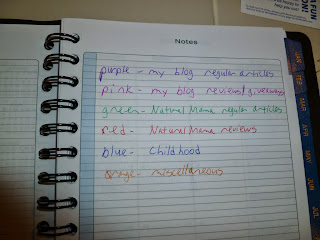 Notes
purple - my blog regular articles
pink - my blog reviews/giveaways
green - Natural Mama regular articles
red - Natural Mama reviews
blue - Childhood
orange - miscellaneous
APR
MAY
JUN
JUL